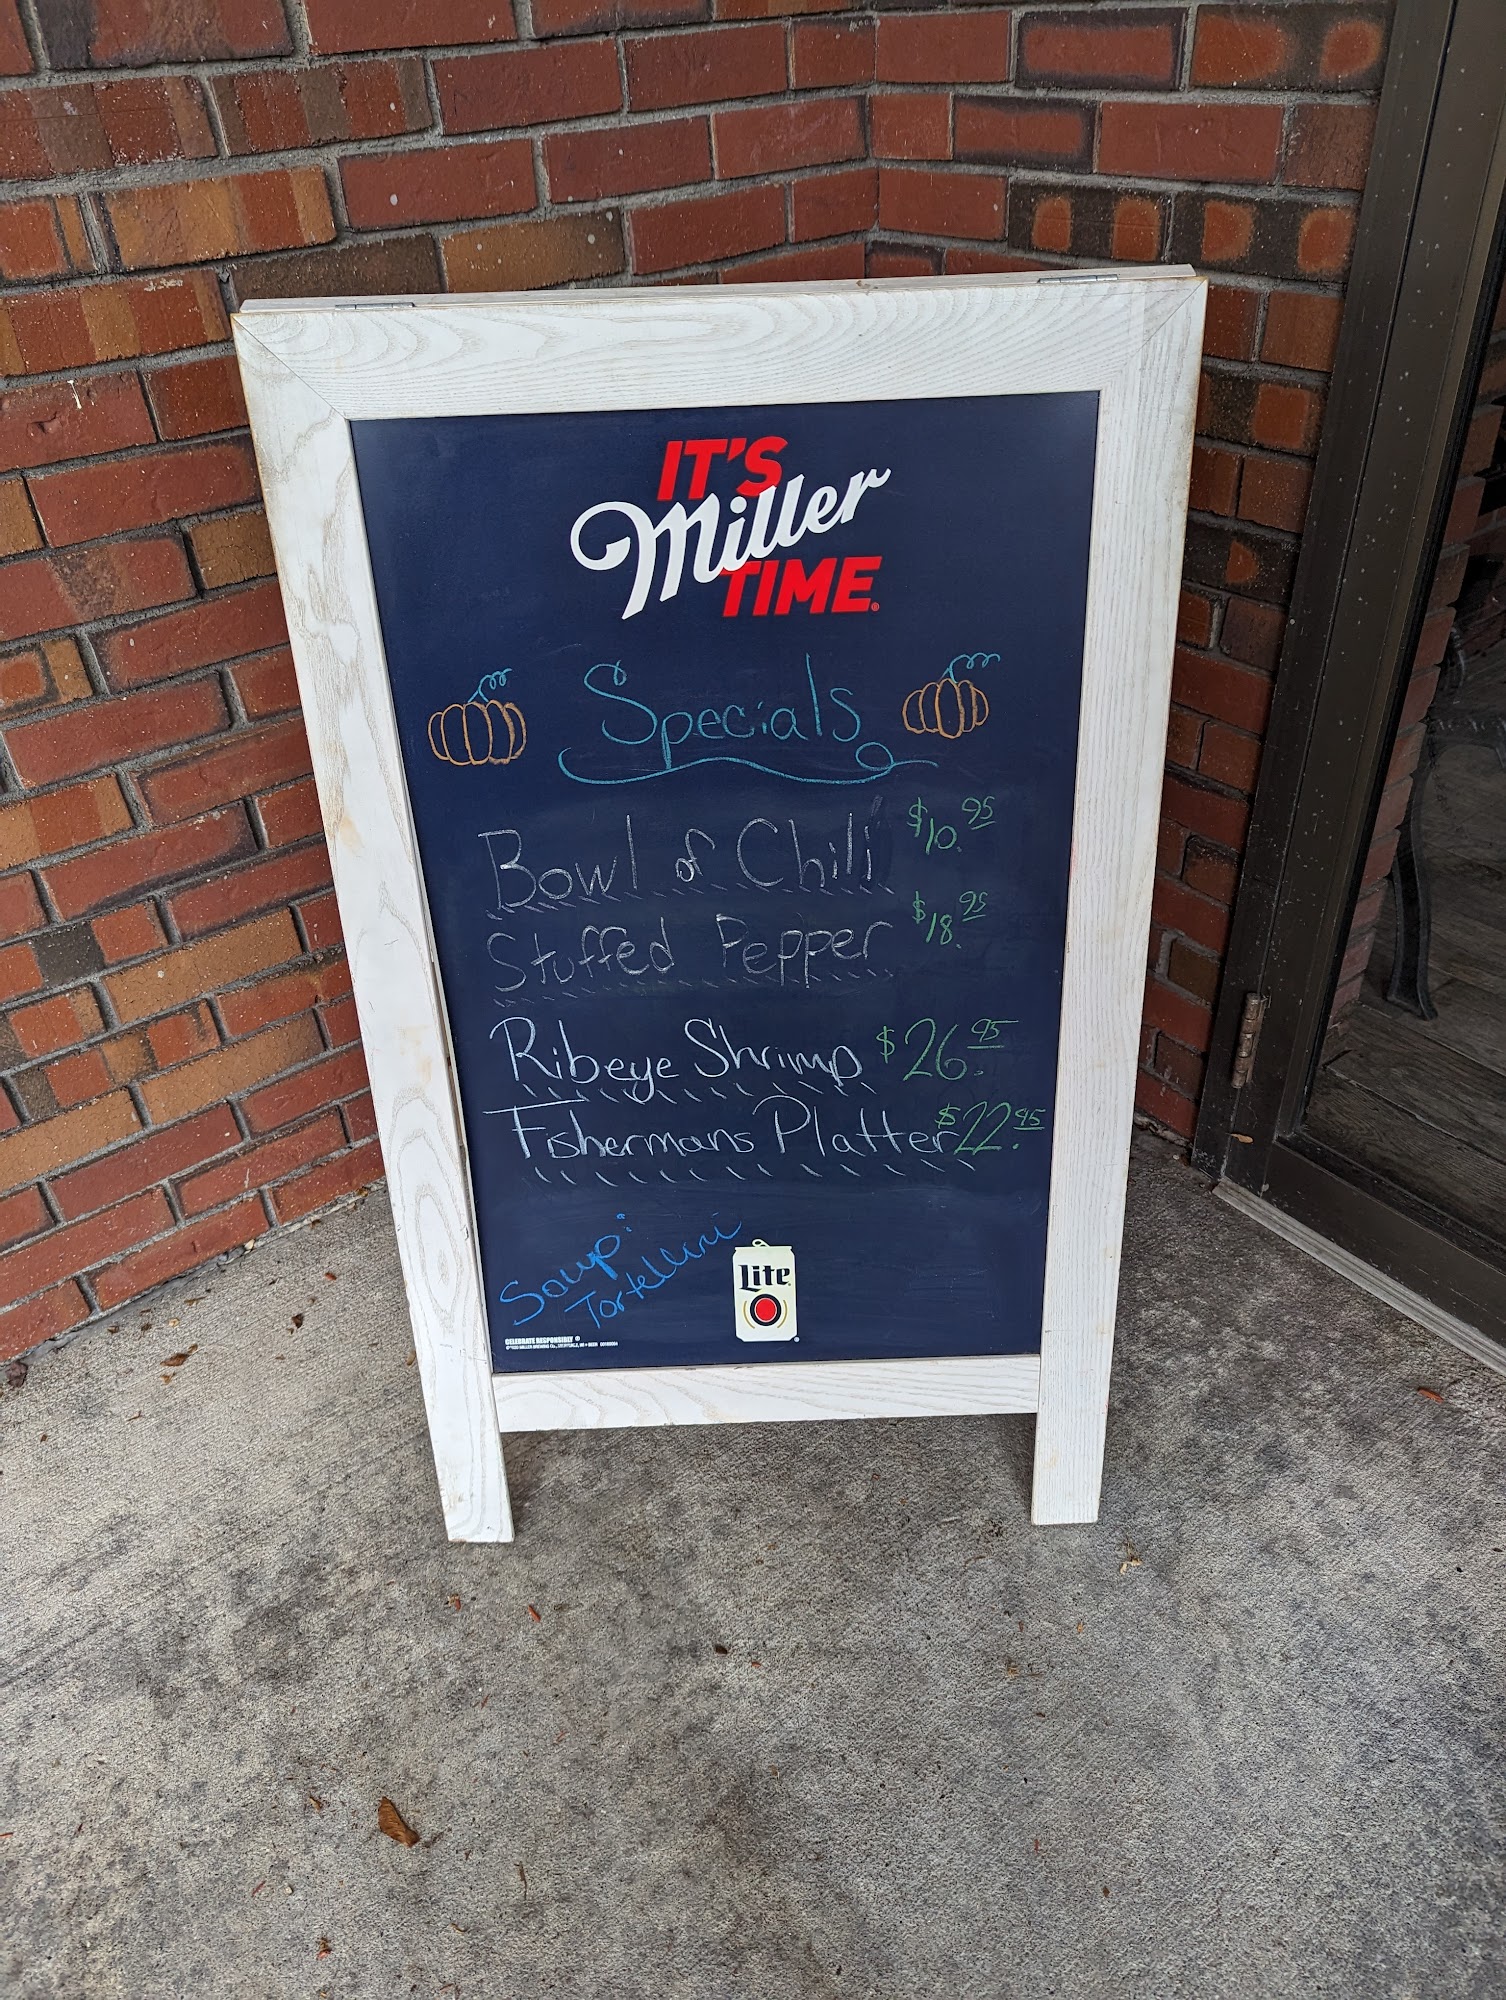 IT'S
Miller
TIME
Specials
Bowl of Chili $10.95
Stuffed Pepper $18.95
Ribeye Shrimp $26.95
Fishermans Platter $22.95
Soup:
Tortellini
Lite
CELEBRATE RESPONSIBLY®